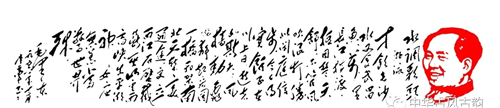 水调歌头
游泳
才饮长沙
水又食武昌
鱼万里
长江横渡
极目楚天
舒不管风
吹浪打胜
似闲庭信
步今日得
宽余子在
川上曰逝者
如斯夫
风樯动龟
蛇静起宏图
一桥飞架南
北天堑变通
途更立西江石
壁截断巫山云雨
高峡出平湖
神女应
无恙当
惊世界
殊
毛泽东
中华古风古韵